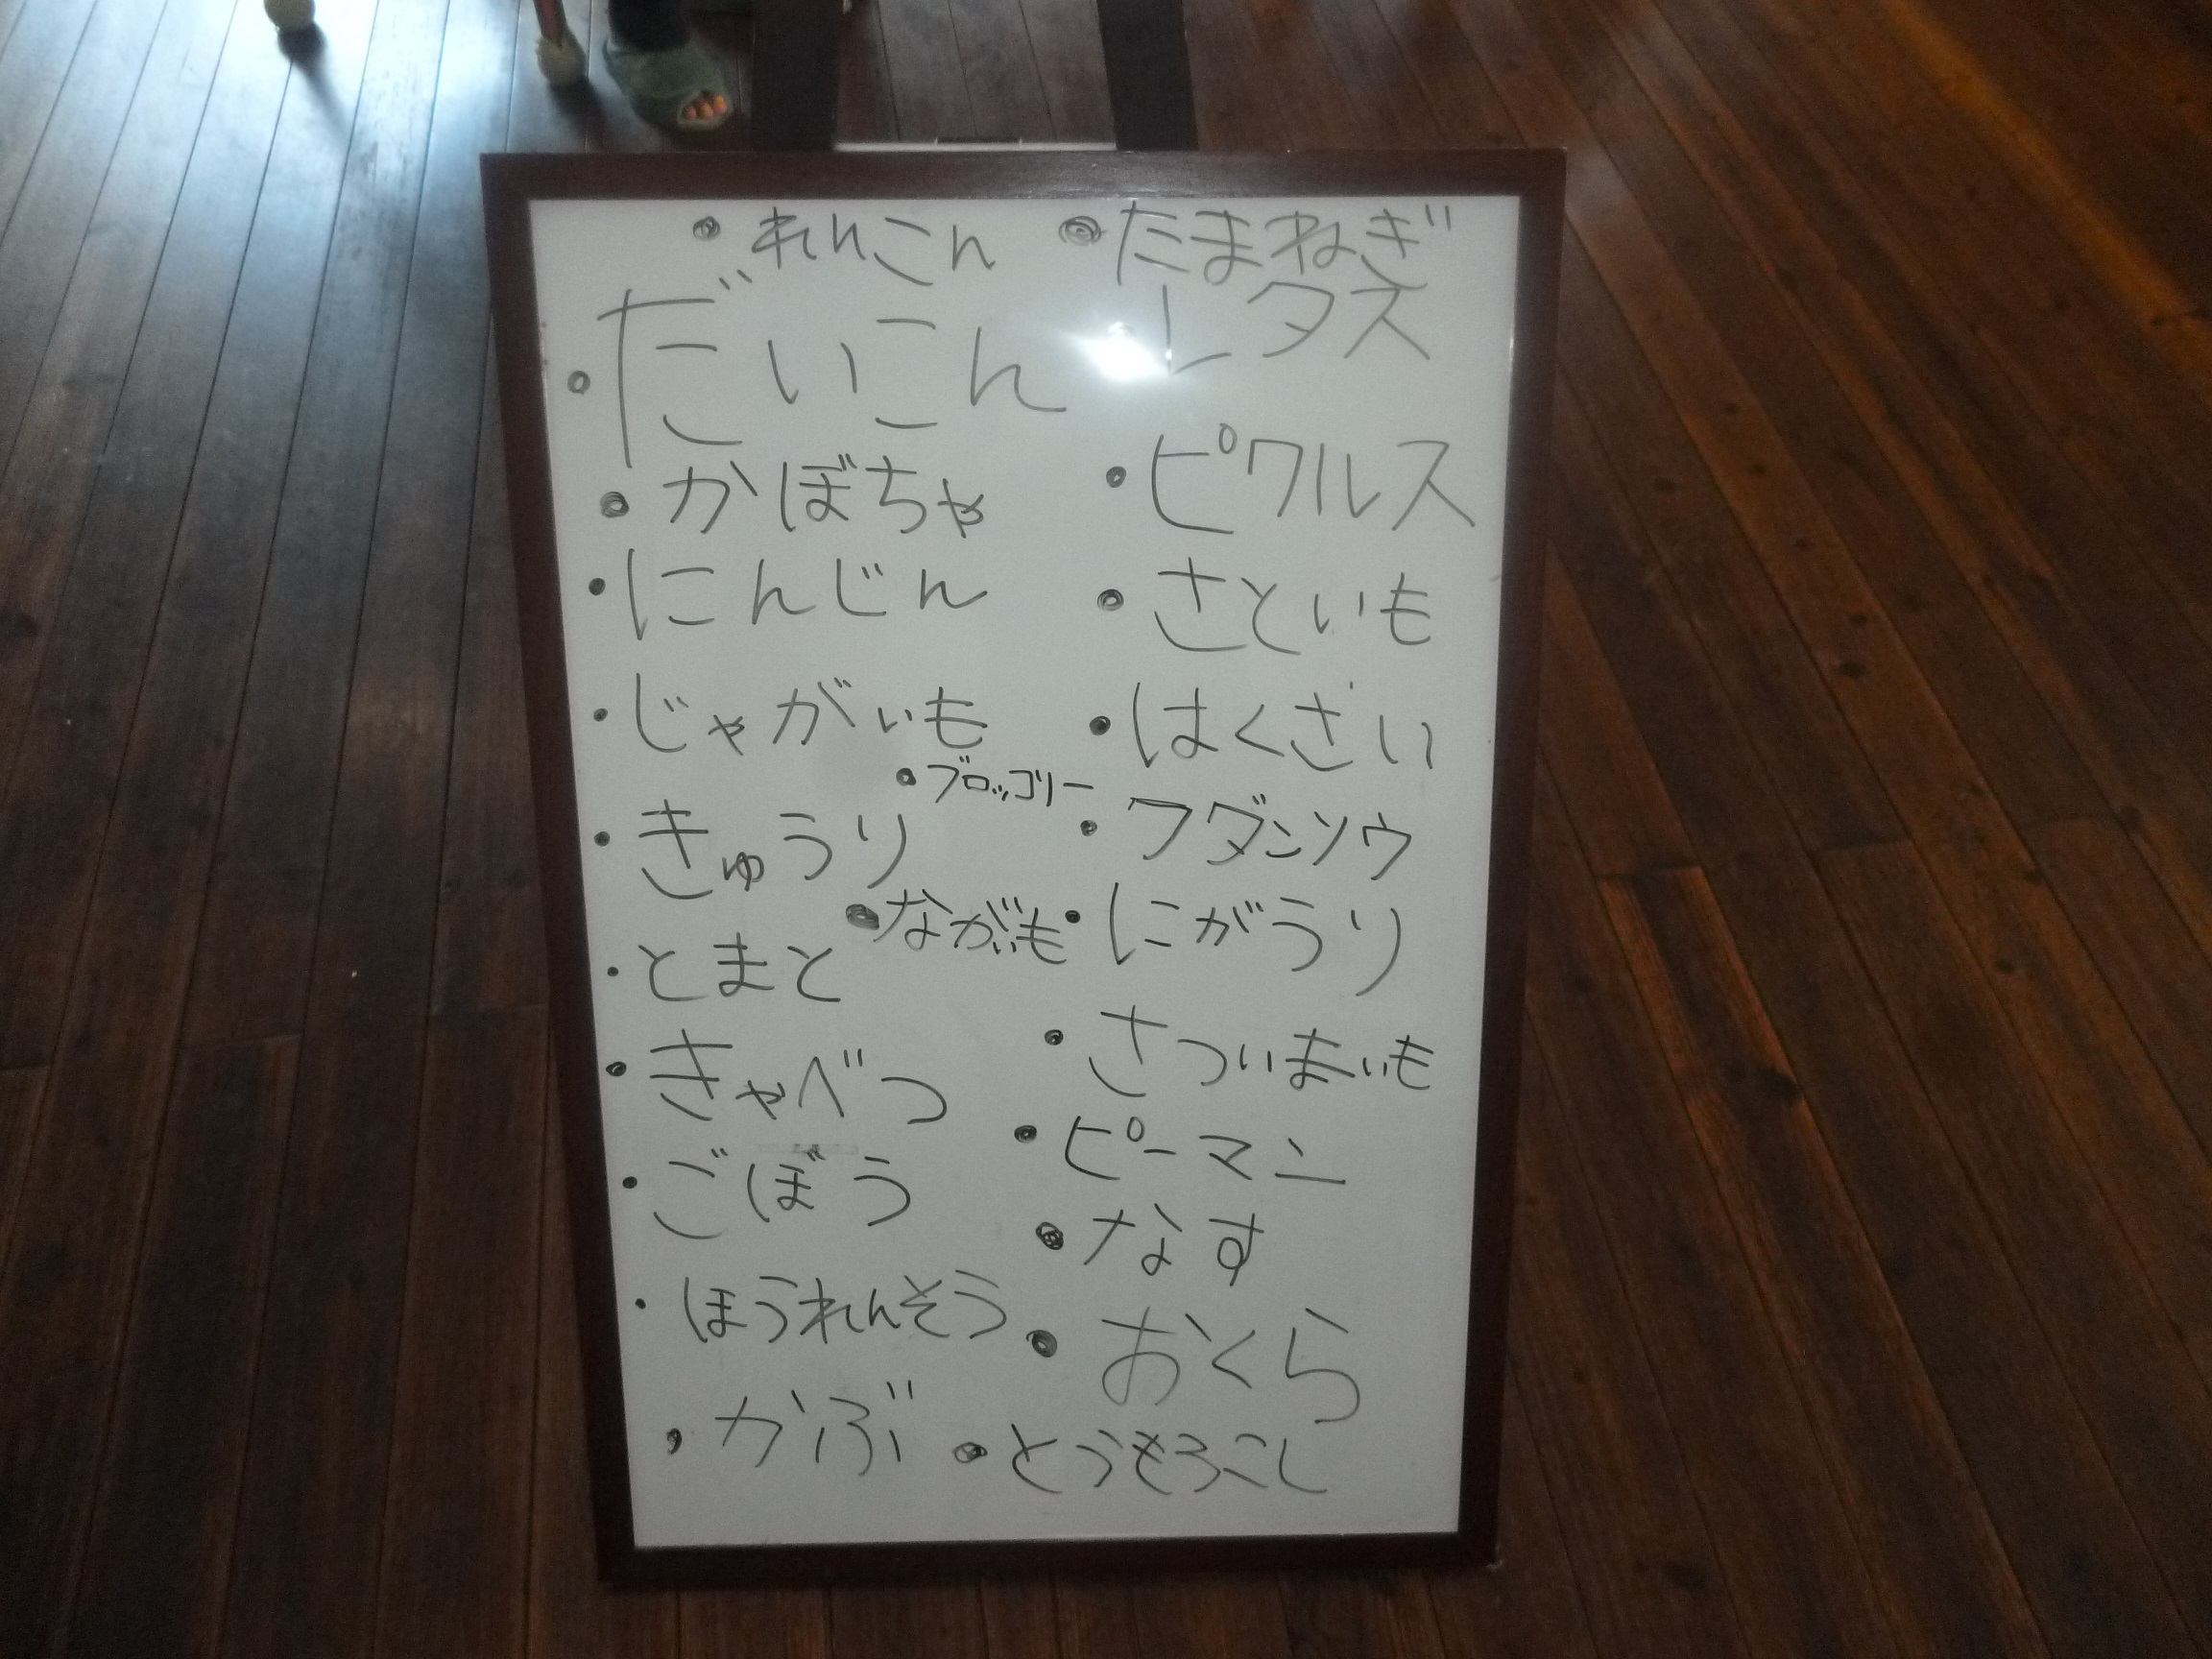 ・れんこん
・だいこん
・かぼちゃ
・にんじん
・じゃがいも
・ブロッコリー
・きゅうり
・ながいも
・とまと
・きゃべつ
・ごぼう
・ほうれんそう
・かぶ
・たまねぎ
・レタス
・ピクルス
・さといも
・はくさい
・フダンソウ
・にがうり
・さついまいも
・ピーマン
・なす
・おくら
・とうもろこし